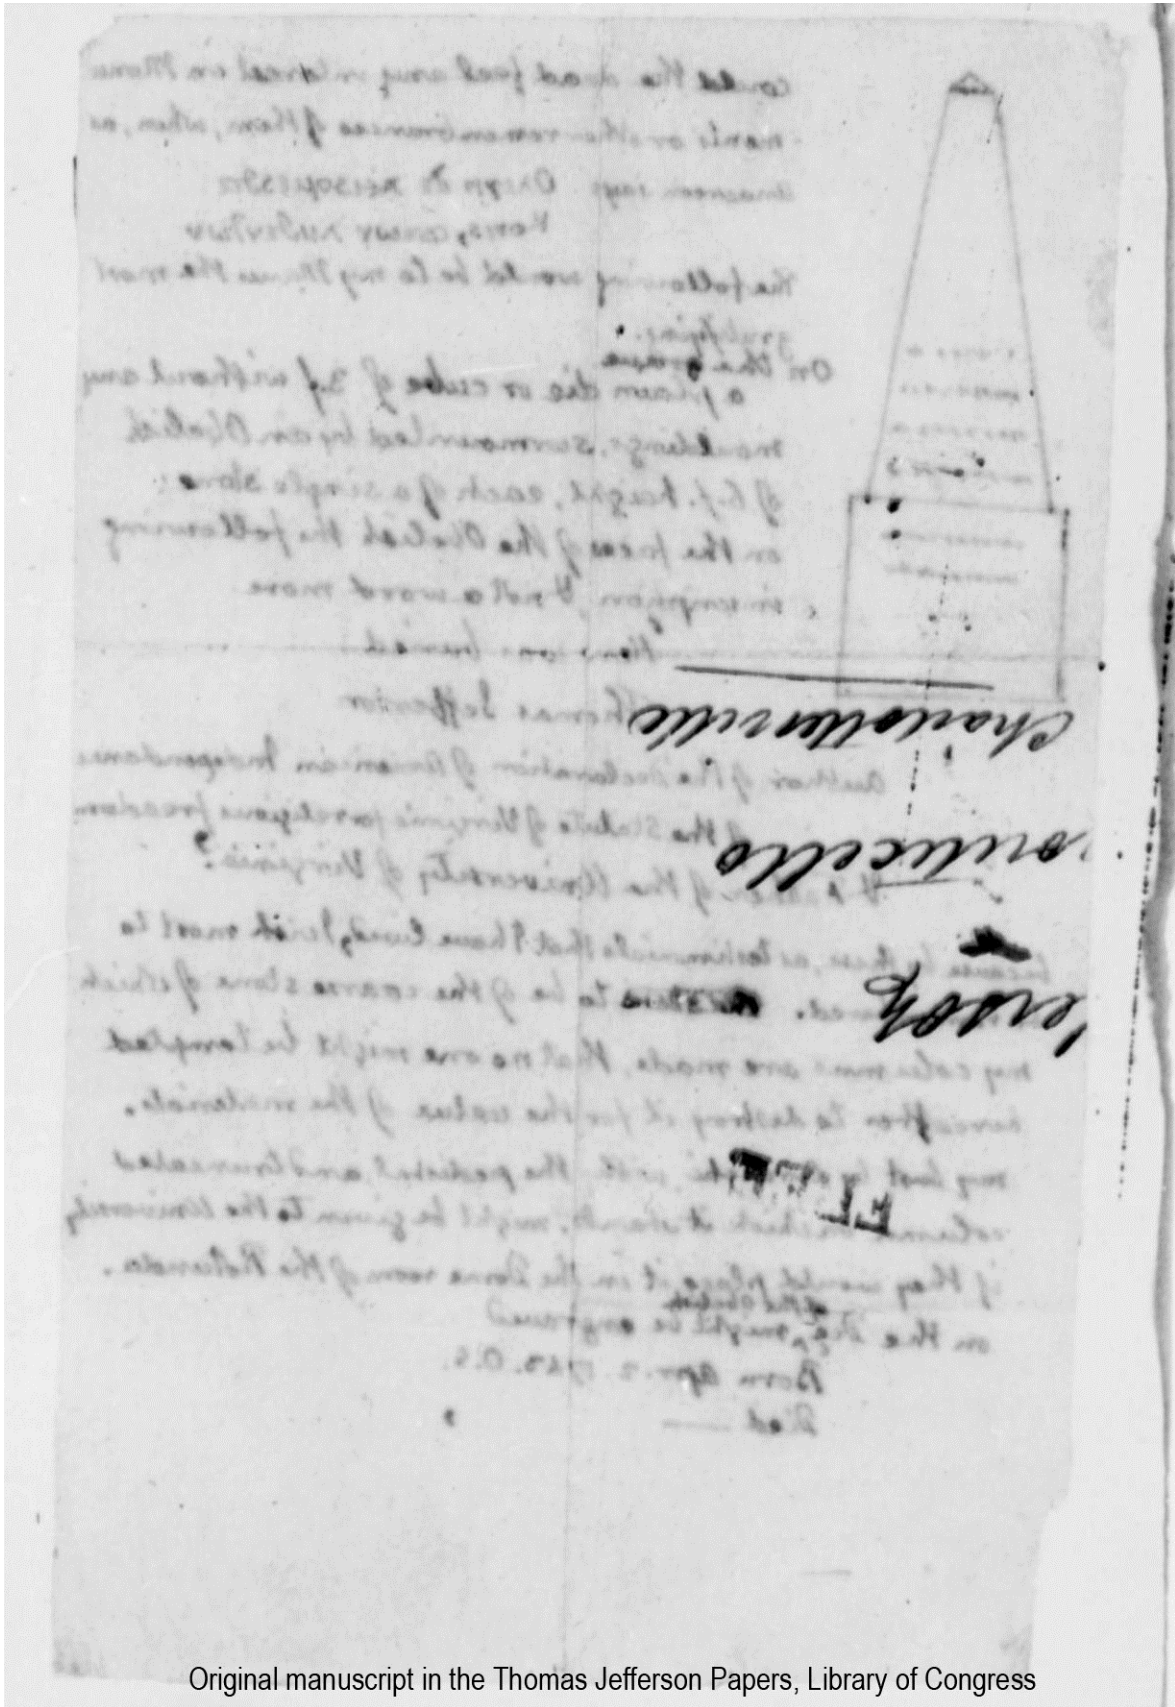 could the dead feel any interest in Monu
-ments or other remembrances of them, when, as
Anacreon says Ολιγη δε κεισομεσθα
Κονις, οστεων λυθεντων
the following would be to my Manes the most
gratifying.
On the grave
a plain die or cube of 3.f without any
mouldings, surmounted by an Obelisk
of 6.f. height, each of a single stone:
on the faces of the Obelisk the following
inscription, & not a word more
Here was buried
Thomas Jefferson
Author of the Declaration of American Independance
of the Statute of Virginia for religious freedom
& Father of the University of Virginia.
because by these, as testimonials that I have lived, I wish most to
be remembered. to be of the coarse stone of which
my columns are made, that no one might be tempted
hereafter to destroy it for the value of the materials.
my bust by with the pedestal and truncated
column on which it stands, might be given to the University
if they would place it in the Dome room of the Rotunda.
of the Obelisk
on the Die, might be engraved
Born Apr. 2. 1743. O.S.
Died ——
Charlottesville
onticello
erson
Original manuscript in the Thomas Jefferson Papers, Library of Congress